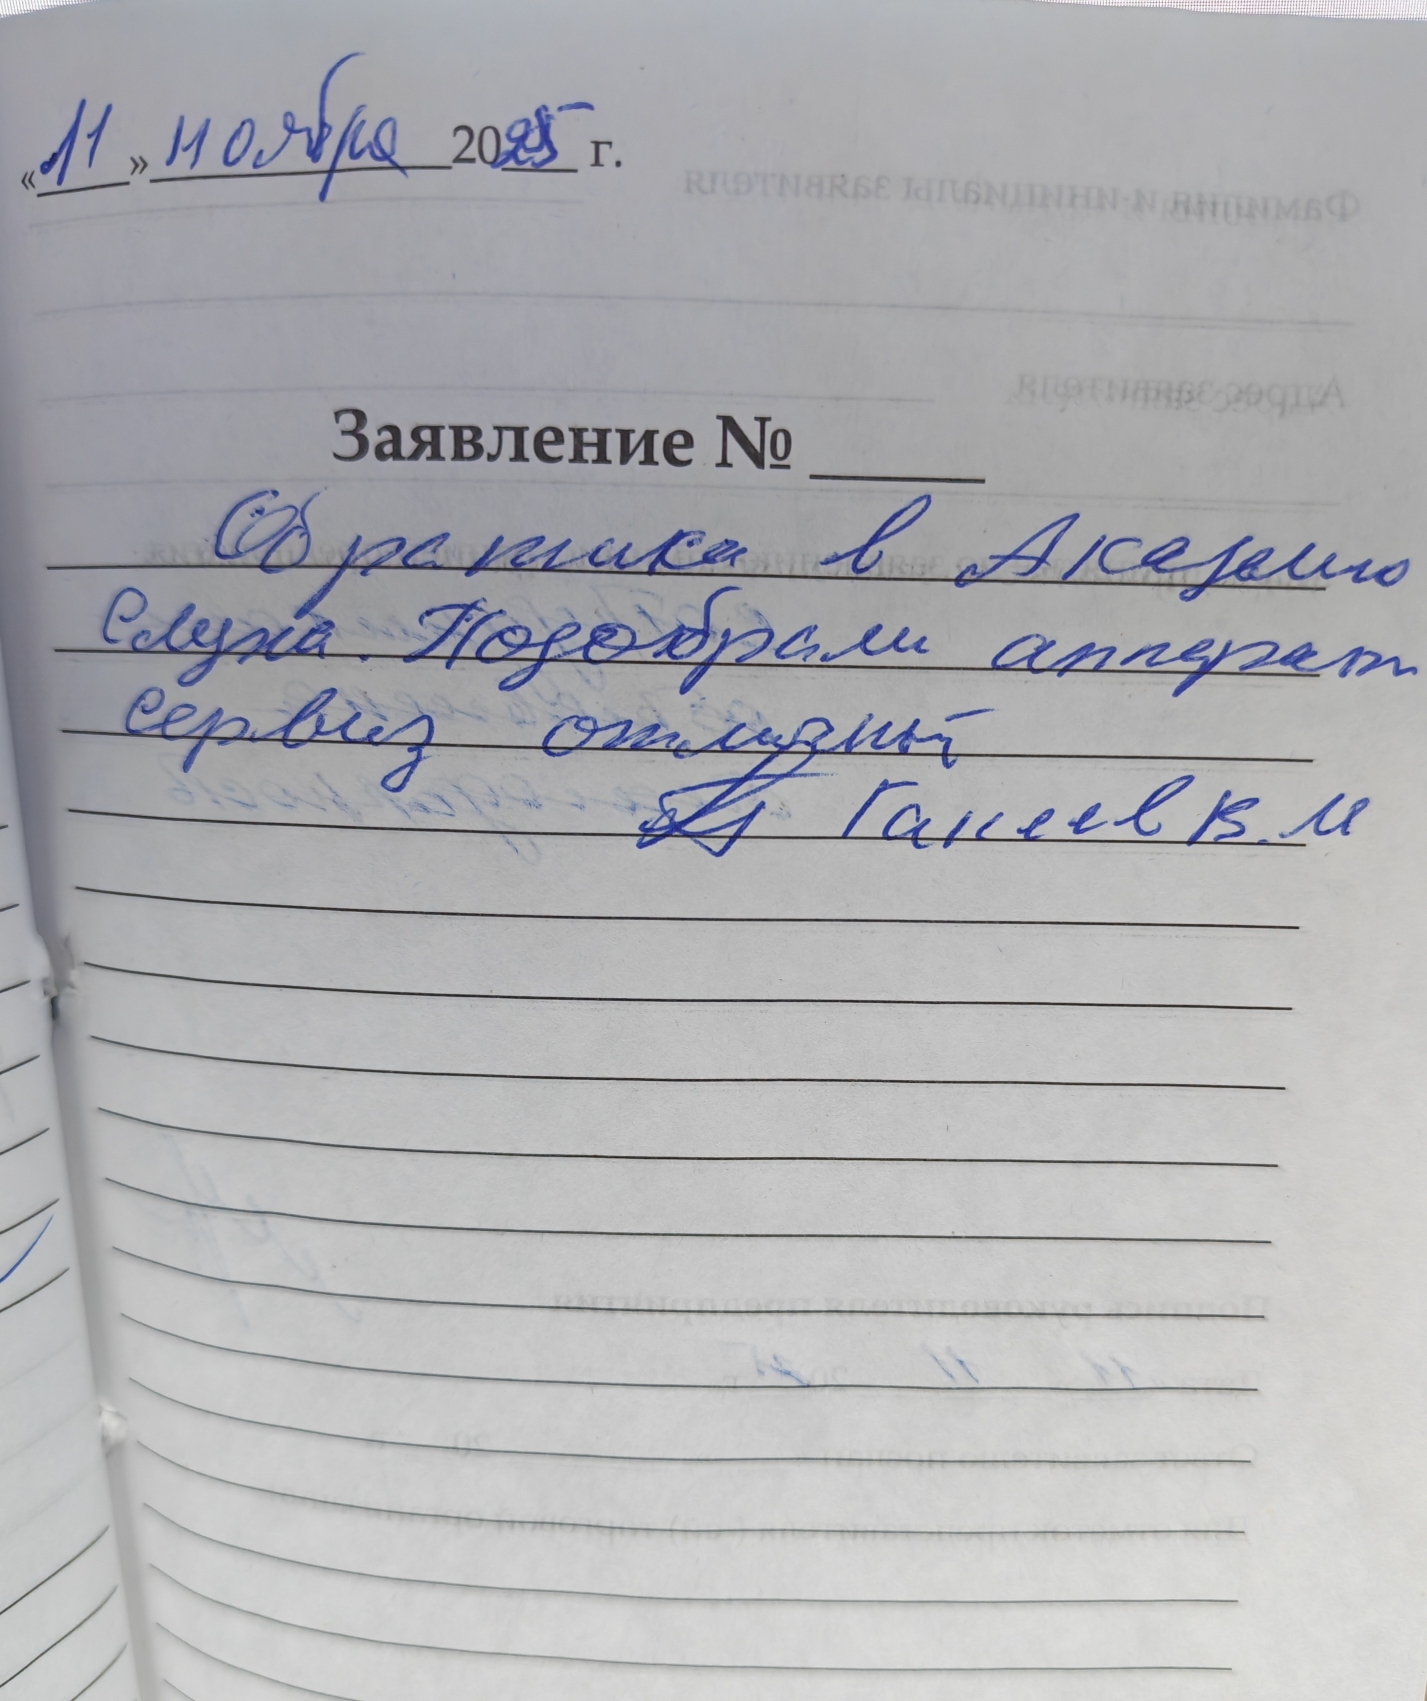 «11» ноября 2025 г.
Заявление № ____
Обратилса в Академию
Слуха. Подобрали аппарат
Сервиз отличный
Ганеев В.М